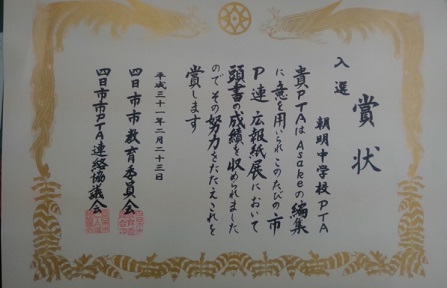 賞状
入選
朝明中学校PTA
貴PTAはAsakeの編集
に意を用いられこのたびの市
P連広報紙展において
頭書の成績を収められました
のでその努力をたたえこれを
賞します
平成三十一年二月二十三日
四日市市教育委員会
四日市市PTA連絡協議会